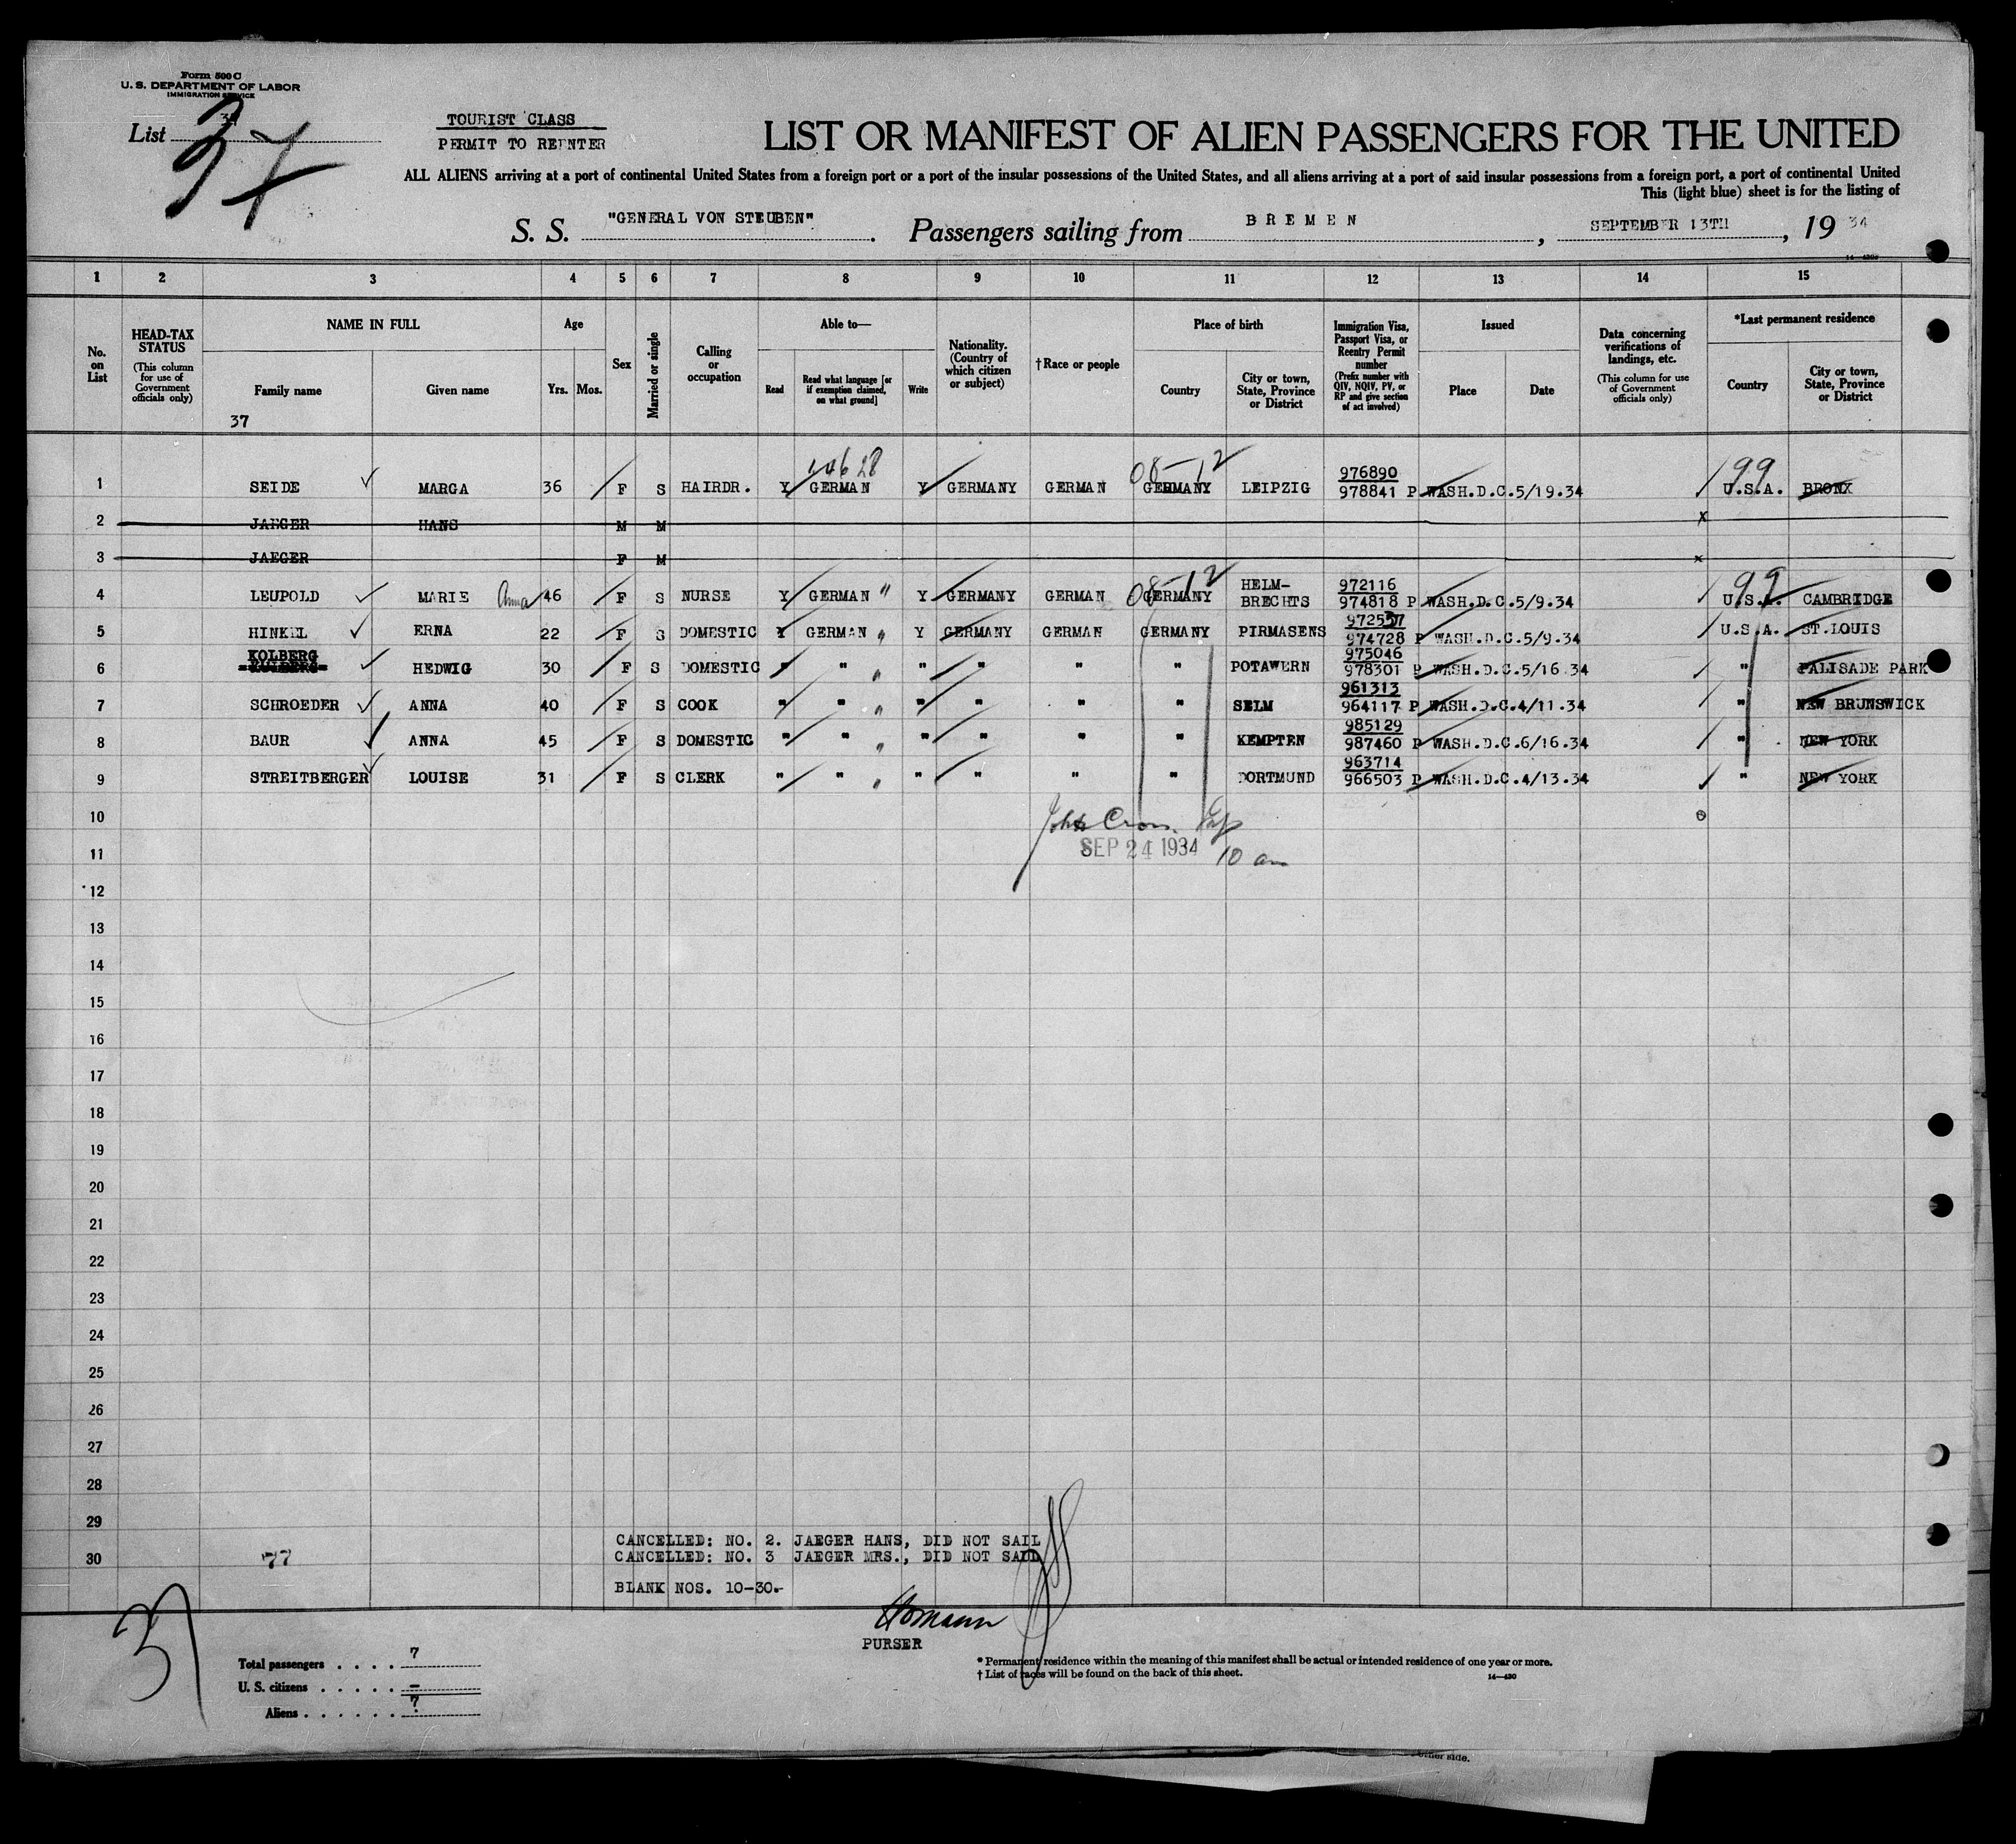 Form 500 C
U. S. DEPARTMENT OF LABOR
IMMIGRATION SERVICE
List 37
37
TOURIST CLASS
PERMIT TO REENTER
LIST OR MANIFEST OF ALIEN PASSENGERS FOR THE UNITED
ALL ALIENS arriving at a port of continental United States from a foreign port or a port of the insular possessions of the United States, and all aliens arriving at a port of said insular possessions from a foreign port, a port of continental United
This (light blue) sheet is for the listing of
S. S. "GENERAL VON STEUBEN". Passengers sailing from BREMEN, SEPTEMBER 13TH, 1934
1 2 3 4 5 6 7 8 9 10 11 12 13 14 15
No. on List
HEAD-TAX STATUS
(This column for use of Government officials only)
NAME IN FULL
Family name
Given name
37
Age
Yrs. Mos.
Sex
Married or single
Calling or occupation
Able to—
Read
Read what language [or if exemption claimed, on what ground]
Write
Nationality. (Country of which citizen or subject)
†Race or people
Place of birth
Country
City or town, State, Province or District
Immigration Visa, Passport Visa, or Reentry Permit number
(Prefix number with QIV, NQIV, PV, or RP and give section of act involved)
Issued
Place
Date
Data concerning verifications of landings, etc.
(This column for use of Government officials only)
*Last permanent residence
Country
City or town, State, Province or District
08-12 99
1 SEIDE MARGA 36 F S HAIRDR. Y GERMAN Y GERMANY GERMAN GERMANY LEIPZIG 976890 978841 P WASH.D.C.5/19.34 U.S.A. BRONX
2 JAEGER HANS M M x
3 JAEGER F M x
08-12 99
4 LEUPOLD MARIE Anna 46 F S NURSE Y GERMAN " Y GERMANY GERMAN GERMANY HELM-BRECHTS 972116 974818 P WASH.D.C.5/9.34 U.S.A. CAMBRIDGE
5 HINKEL ERNA 22 F S DOMESTIC Y GERMAN " Y GERMANY GERMAN GERMANY PIRMASENS 972537 974728 P WASH.D.C.5/9.34 U.S.A. ST.LOUIS
6 KOLBERG HEDWIG 30 F S DOMESTIC " " " " " " " POTAWERN 975046 978301 P WASH.D.C.5/16.34 " PALISADE PARK
7 SCHROEDER ANNA 40 F S COOK " " " " " " " SELM 961313 964117 P WASH.D.C.4/11.34 " NEW BRUNSWICK
8 BAUR ANNA 45 F S DOMESTIC " " " " " " " KEMPTEN 985129 987460 P WASH.D.C.6/16.34 " NEW YORK
9 STREITBERGER LOUISE 31 F S CLERK " " " " " " " DORTMUND 963714 966503 P WASH.D.C.4/13.34 " NEW YORK
10
11 SEP 24 1934 10 am
12
13
14
15
16
17
18
19
20
21
22
23
24
25
26
27
28
29
30
77
CANCELLED: NO. 2. JAEGER HANS, DID NOT SAIL
CANCELLED: NO. 3 JAEGER MRS., DID NOT SAIL
BLANK NOS. 10-30.-
37
Homann
PURSER
Total passengers . . . . 7
U. S. citizens . . . . . —
Aliens . . . . . . 7
* Permanent residence within the meaning of this manifest shall be actual or intended residence of one year or more.
† List of races will be found on the back of this sheet.
14—430
other side.